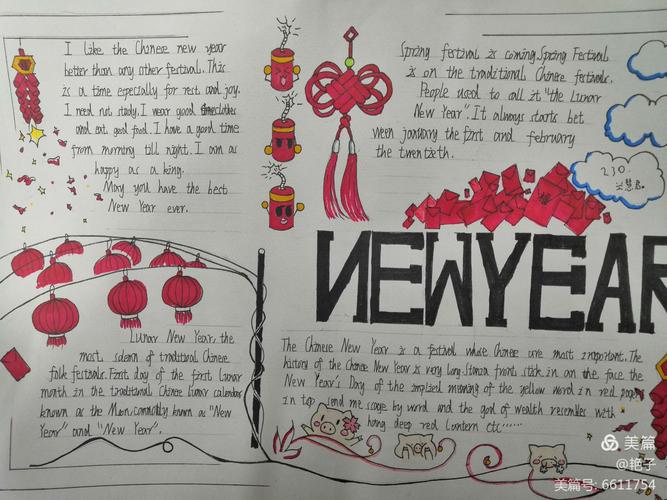 I like the Chinese new year
better than any other festival. This
is a time especially for rest and joy.
I need not study. I wear good clothes
and eat good food. I have a good time
from morning till night. I am as
happy as a king.
May you have the best
New Year ever.
Spring festival is coming. Spring Festival
is on the traditional Chinese festivals.
People used to call it "the Lunar
New Year". It always starts bet
ween january the first and february
the twentieth.
230
NEWYEAR
Lunar New Year, the
most solemn of traditional Chinese
folk festivals. First day of the first lunar
month in the traditional Chinese lunar calendar
known as the Moon, commonly known as "New
Year" and "New Year".
The Chinese New Year is a festival whose Chinese are most important. The
history of the Chinese New Year is very long, Stanza front stick in on the face the
New Year's Day of the implied meaning of the yellow word in red paper
in top send message by word and the god of wealth resembles with
hang deep red lantern etc......
美篇
@艳子
美篇号: 6611754